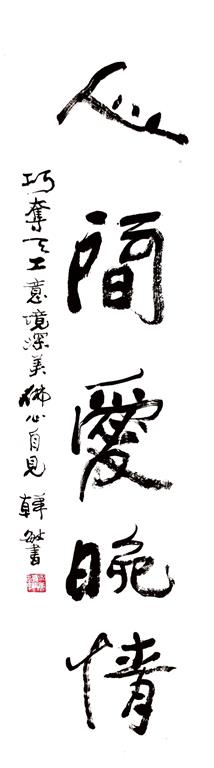 人間愛晚情
巧奪天工意境深美佛心自見 韓敏書